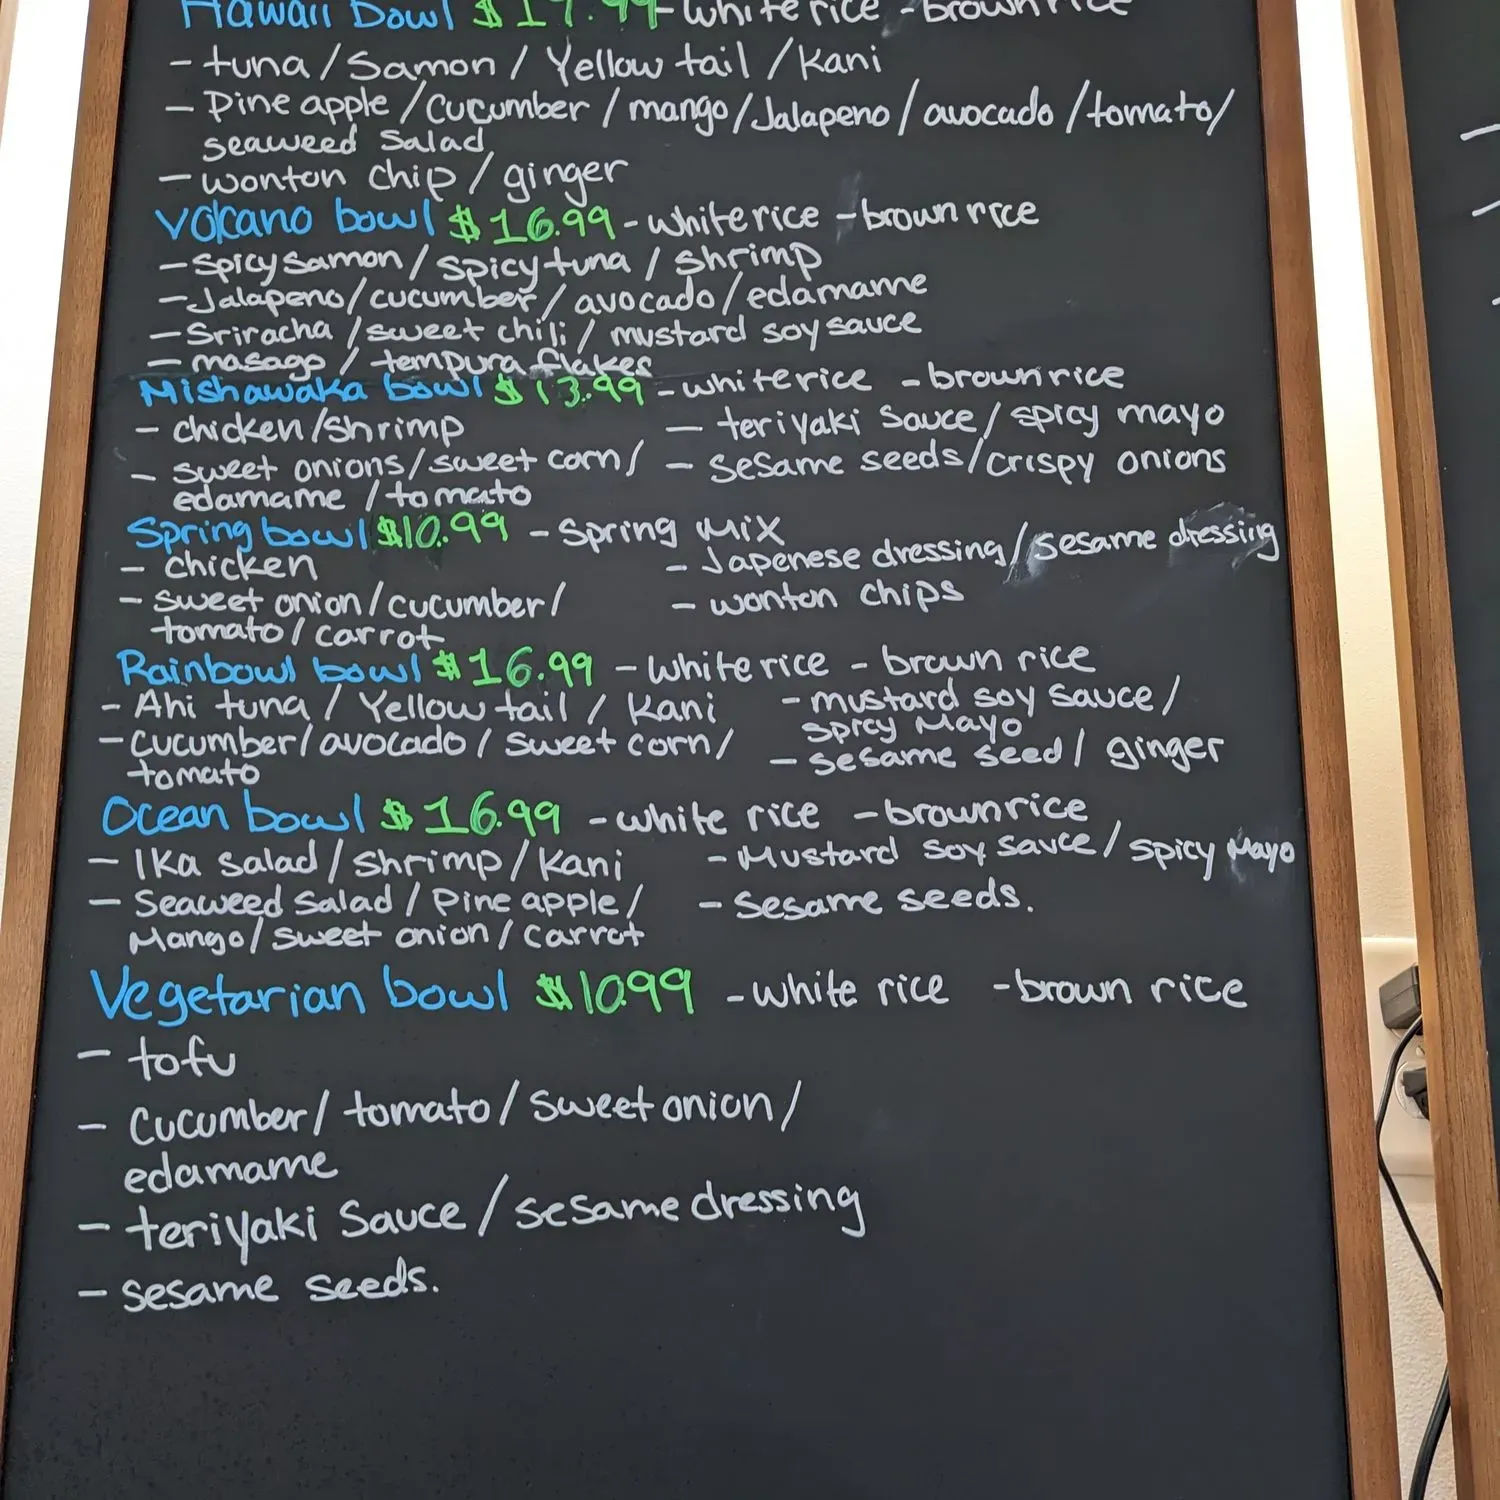 Hawaii bowl $17.99 - white rice - brown rice
- tuna / Samon / Yellow tail / Kani
- Pine apple / cucumber / mango / Jalapeno / avocado / tomato /
seaweed Salad
- wonton chip / ginger
Volcano bowl $16.99 - white rice - brown rice
- spicy samon / spicy tuna / shrimp
- Jalapeno / cucumber / avocado / edamame
- Sriracha / sweet chili / mustard soy sauce
- masago / tempura flakes
Mishawaka bowl $13.99 - white rice - brown rice
- chicken / shrimp - teriyaki Sauce / spicy mayo
- sweet onions / sweet corn / - sesame seeds / crispy onions
edamame / tomato
Spring bowl $10.99 - Spring Mix
- chicken - Japenese dressing / sesame dressing
- sweet onion / cucumber / - wonton chips
tomato / carrot
Rainbowl bowl $16.99 - white rice - brown rice
- Ahi tuna / Yellow tail / Kani - mustard soy sauce /
spicy Mayo
- cucumber / avocado / sweet corn / - sesame seed / ginger
tomato
Ocean bowl $16.99 - white rice - brown rice
- Ika salad / shrimp / Kani - Mustard soy sauce / spicy Mayo
- Seaweed Salad / Pine apple / - sesame seeds.
Mango / sweet onion / carrot
Vegetarian bowl $10.99 - white rice - brown rice
- tofu
- cucumber / tomato / sweet onion /
edamame
- teriyaki Sauce / sesame dressing
- sesame seeds.